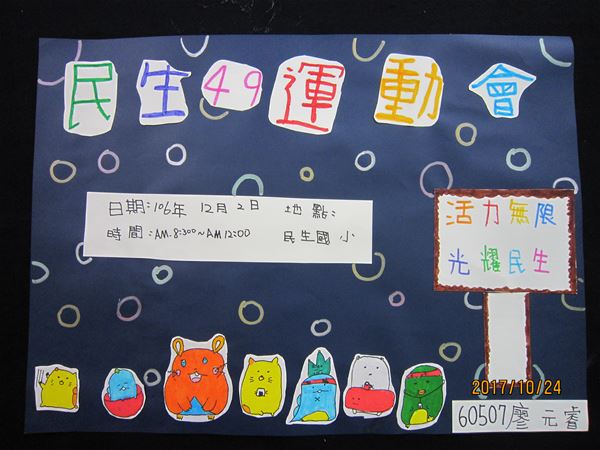 民生49運動會
日期:106年 12月 2日 地點:
時間:AM.8:300~AM12:00 民生國小
活力無限
光耀民生
2017/10/24
60507廖元睿